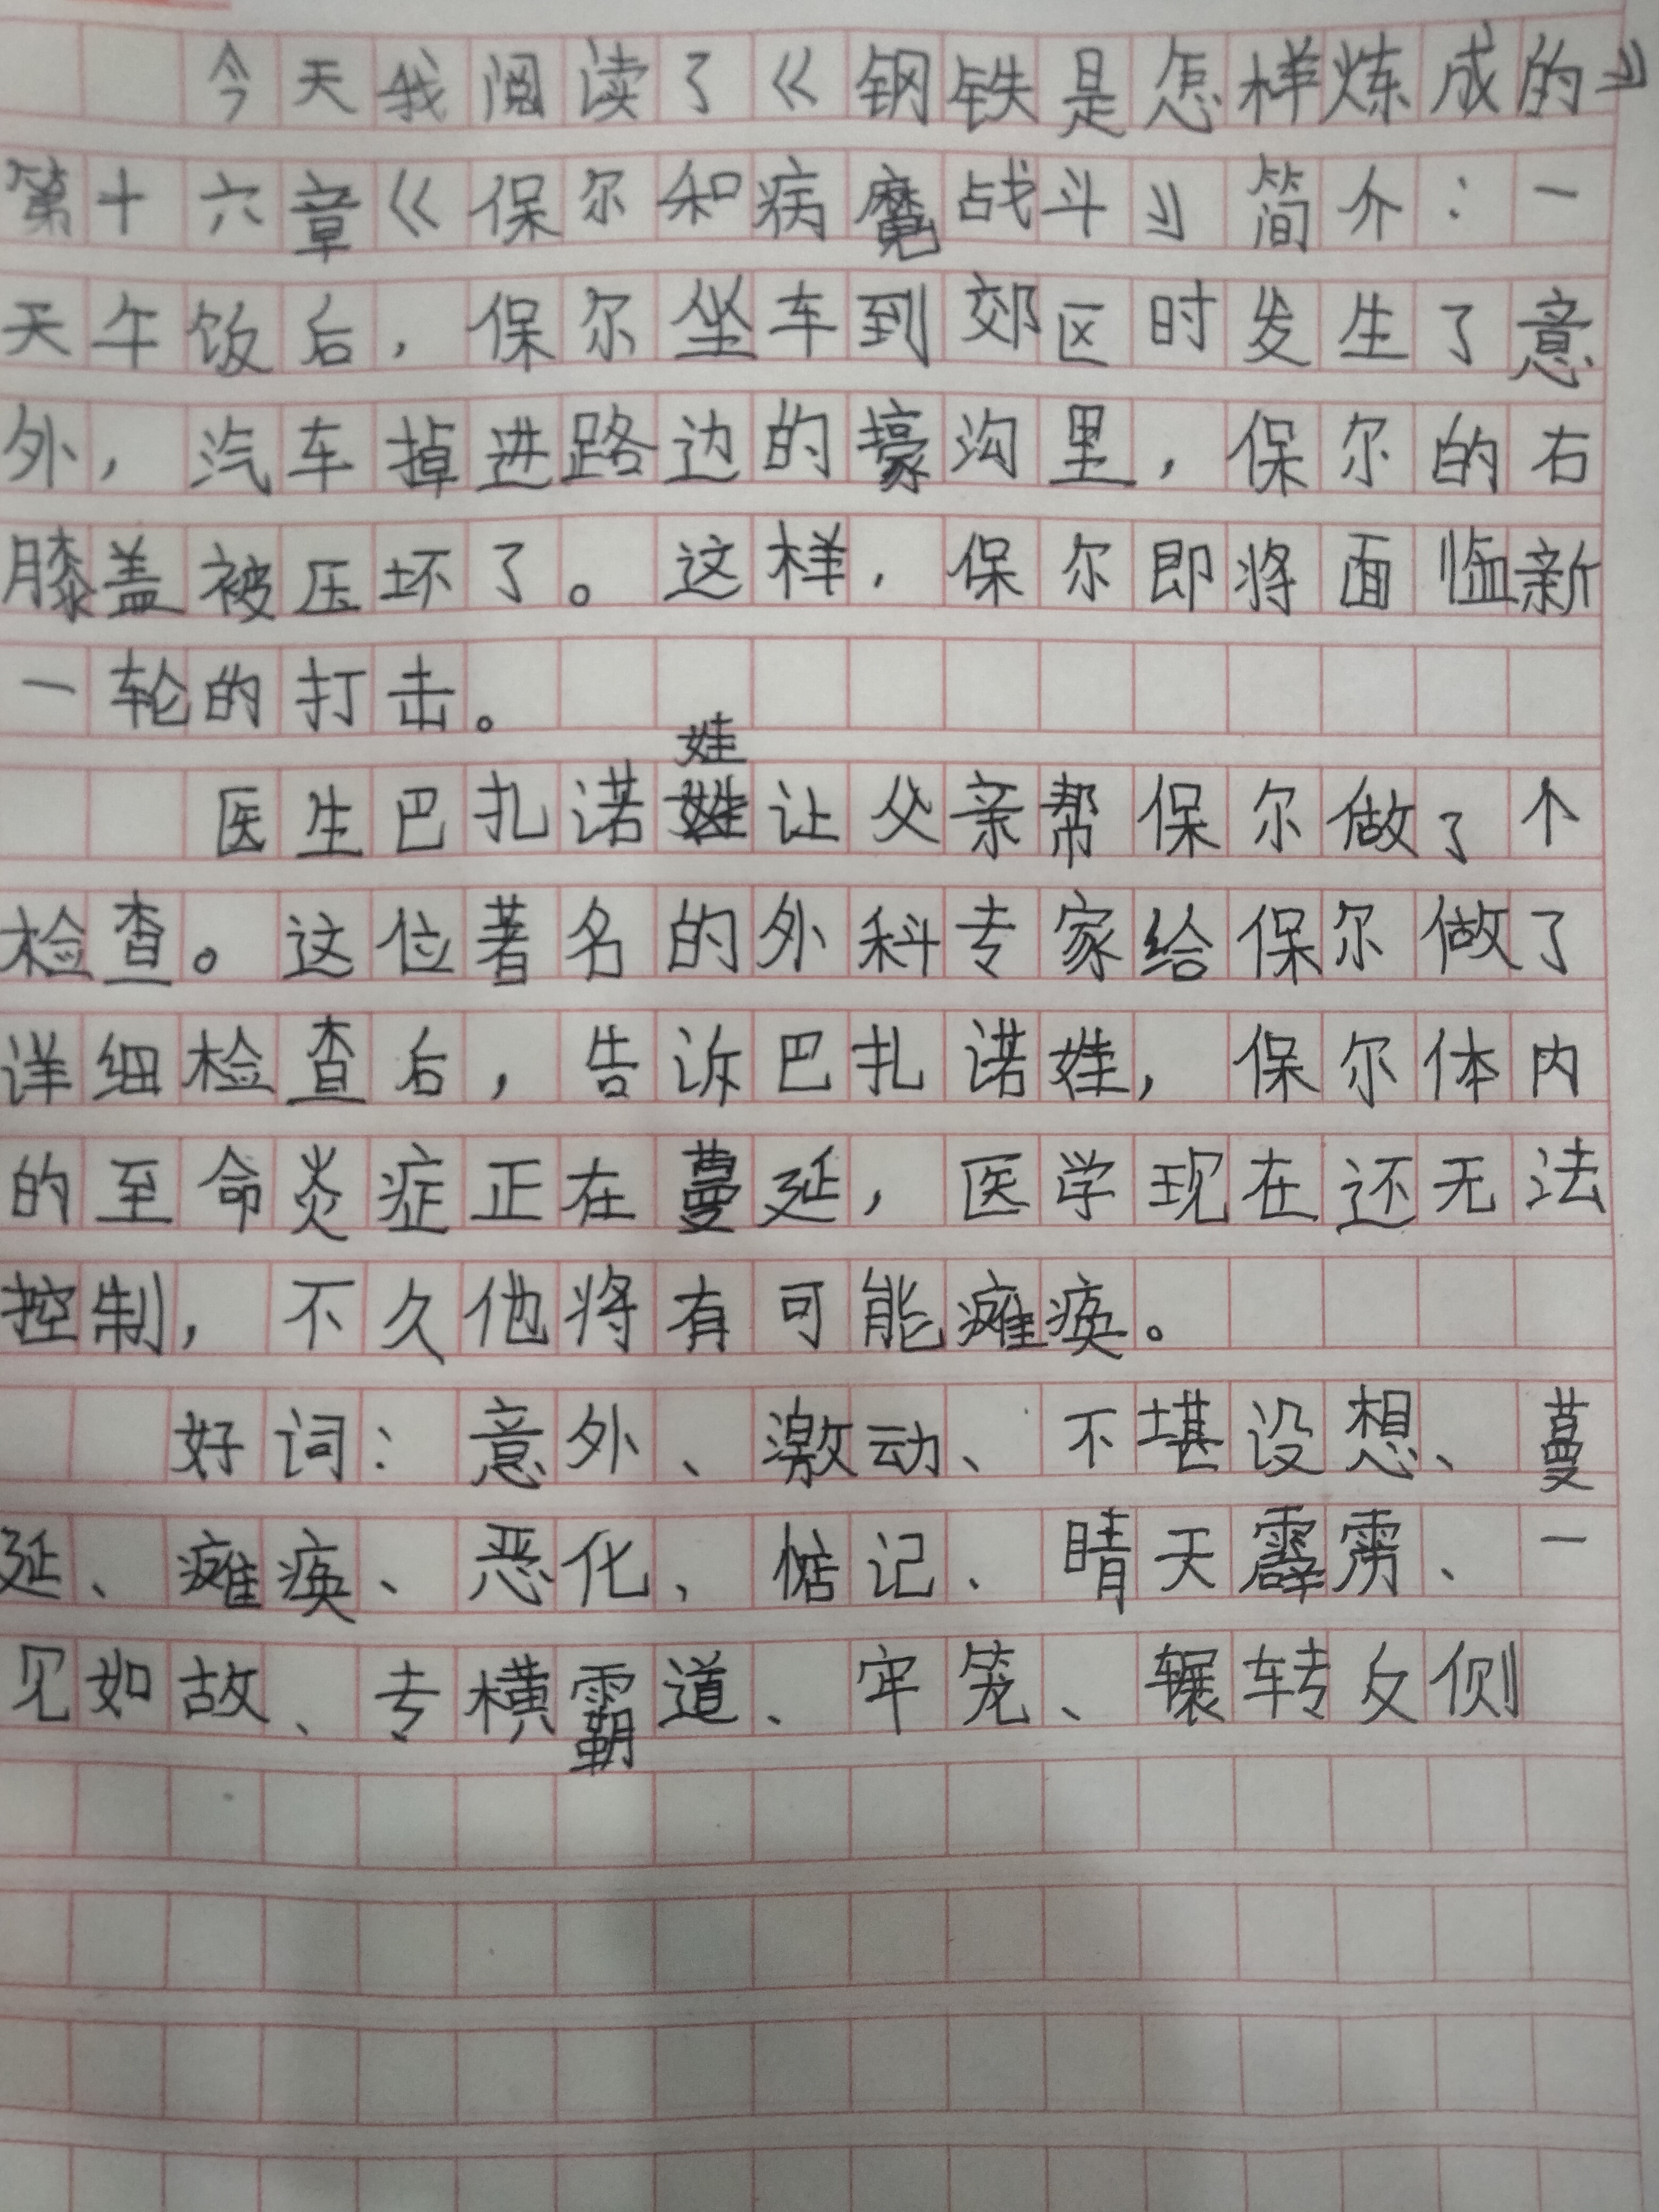 今天我阅读了《钢铁是怎样炼成的》
第十六章《保尔和病魔战斗》简介：一
天午饭后，保尔坐车到郊区时发生了意
外，汽车掉进路边的壕沟里，保尔的右
膝盖被压坏了。这样，保尔即将面临新
一轮的打击。
娃
医生巴扎诺让父亲帮保尔做了个
检查。这位著名的外科专家给保尔做了
详细检查后，告诉巴扎诺娃，保尔体内
的至命炎症正在蔓延，医学现在还无法
控制，不久他将有可能瘫痪。
好词：意外、激动、不堪设想、蔓
延、瘫痪、恶化、惦记、晴天霹雳、一
见如故、专横霸道、牢笼、辗转反侧